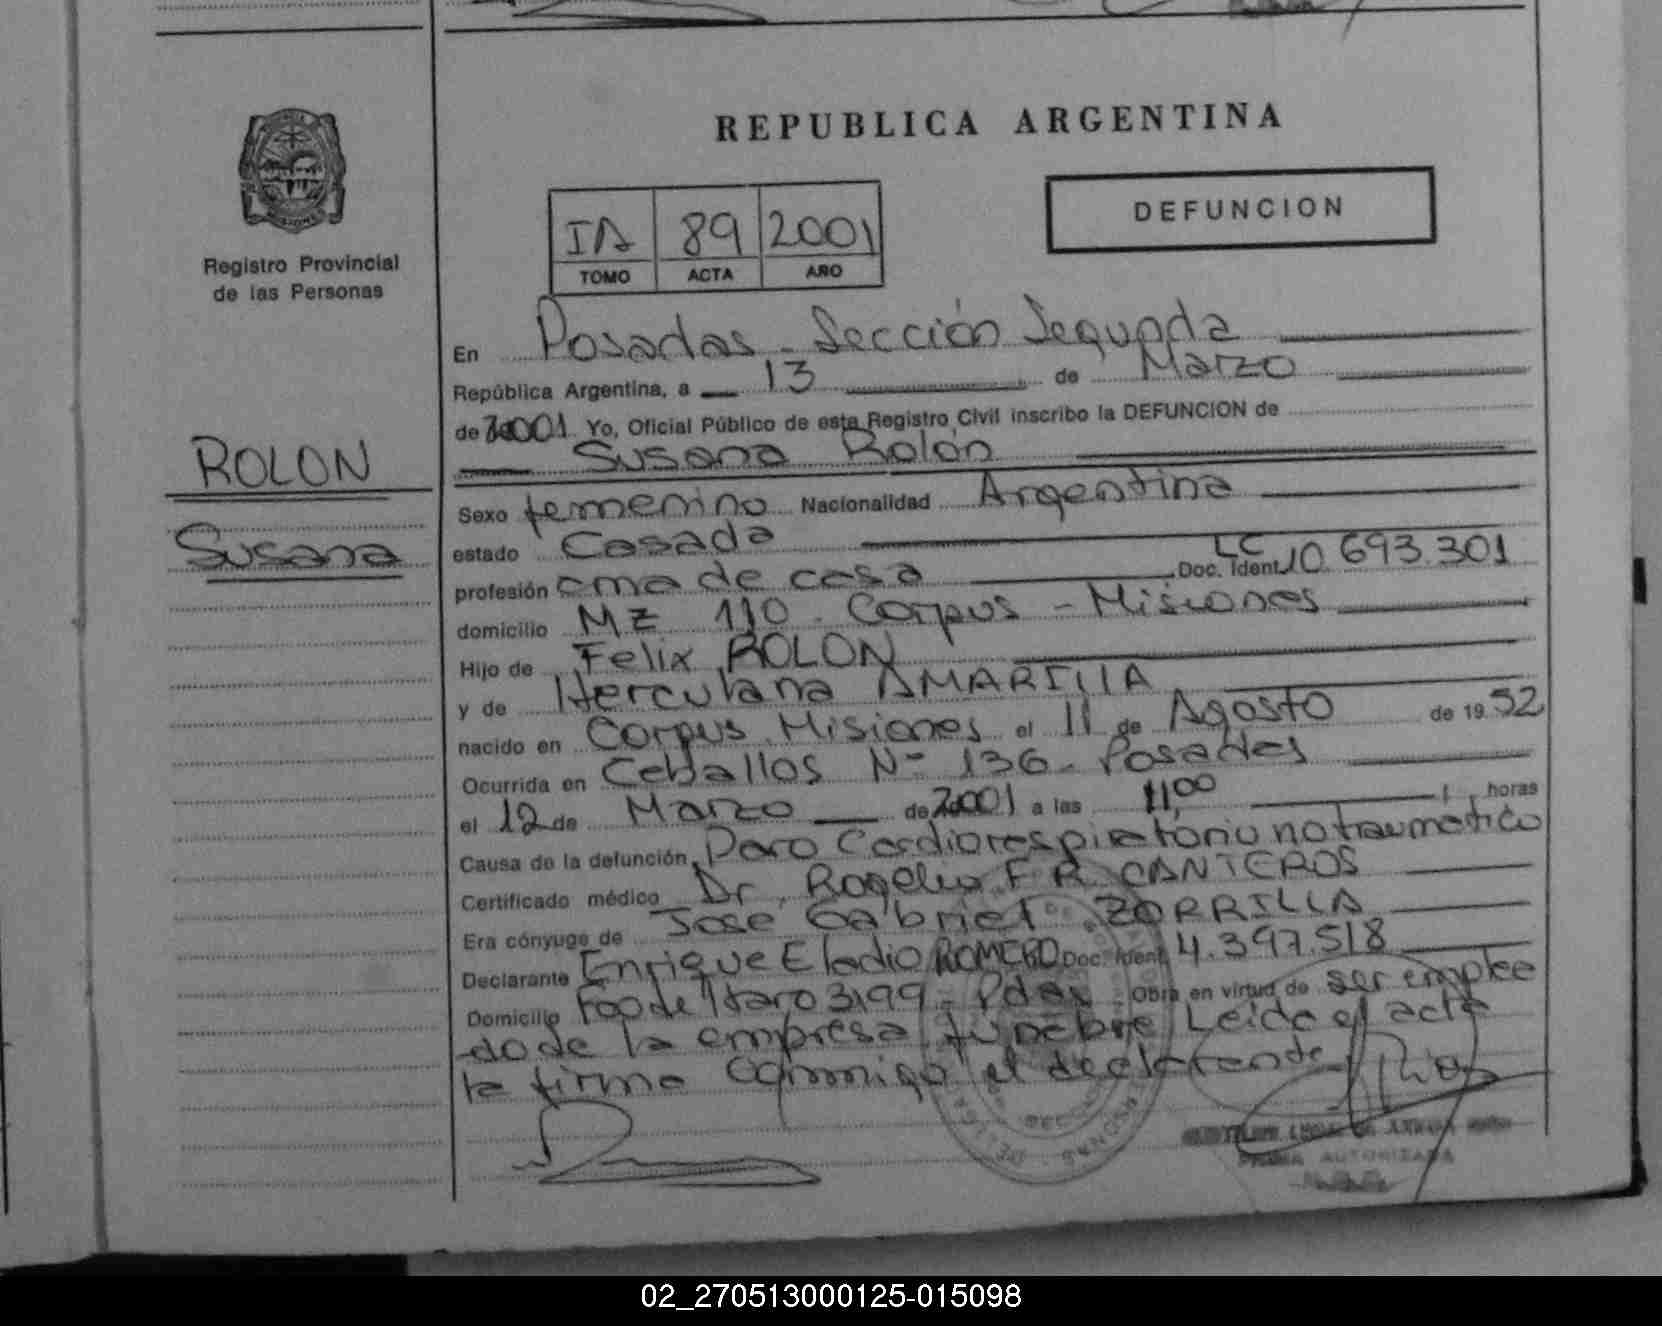 REPUBLICA ARGENTINA
DEFUNCION
IA 89 2001
TOMO ACTA AÑO
Registro Provincial
de las Personas
ROLON
Susana
En Posadas - Sección Segunda
República Argentina, a 13 de Marzo
de 2001 Yo, Oficial Público de este Registro Civil inscribo la DEFUNCION de
Susana Rolón
Sexo femenino Nacionalidad Argentina
estado Casada
profesión ama de casa Doc. Ident. LC 10.693.301
domicilio MZ 110 - Corpus - Misiones
Hijo de Felix ROLON
y de Herculana AMARILLA
nacido en Corpus Misiones el 11 de Agosto de 19 52
Ocurrida en Ceballos Nº 136 - Posadas
el 12 de Marzo de 2001 a las 11,00 horas
Causa de la defunción Paro Cardiorespiratorio no traumatico
Certificado médico Dr. Rogelio F. R. CANTEROS
Era cónyuge de Jose Gabriel ZORRILLA
Declarante Enrique Eladio ROMERO Doc. Ident. 4.397.518
Domicilio Fco de Haro 3199 - Pdas Obra en virtud de ser emplea
do de la empresa funebre Leida el acta
la firma conmigo el declarante
FIRMA AUTORIZADA
02_270513000125-015098